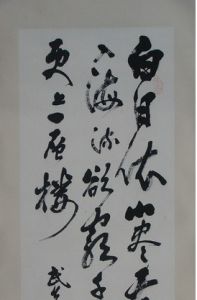 白日依山尽
入海流欲窮千
更上一层楼